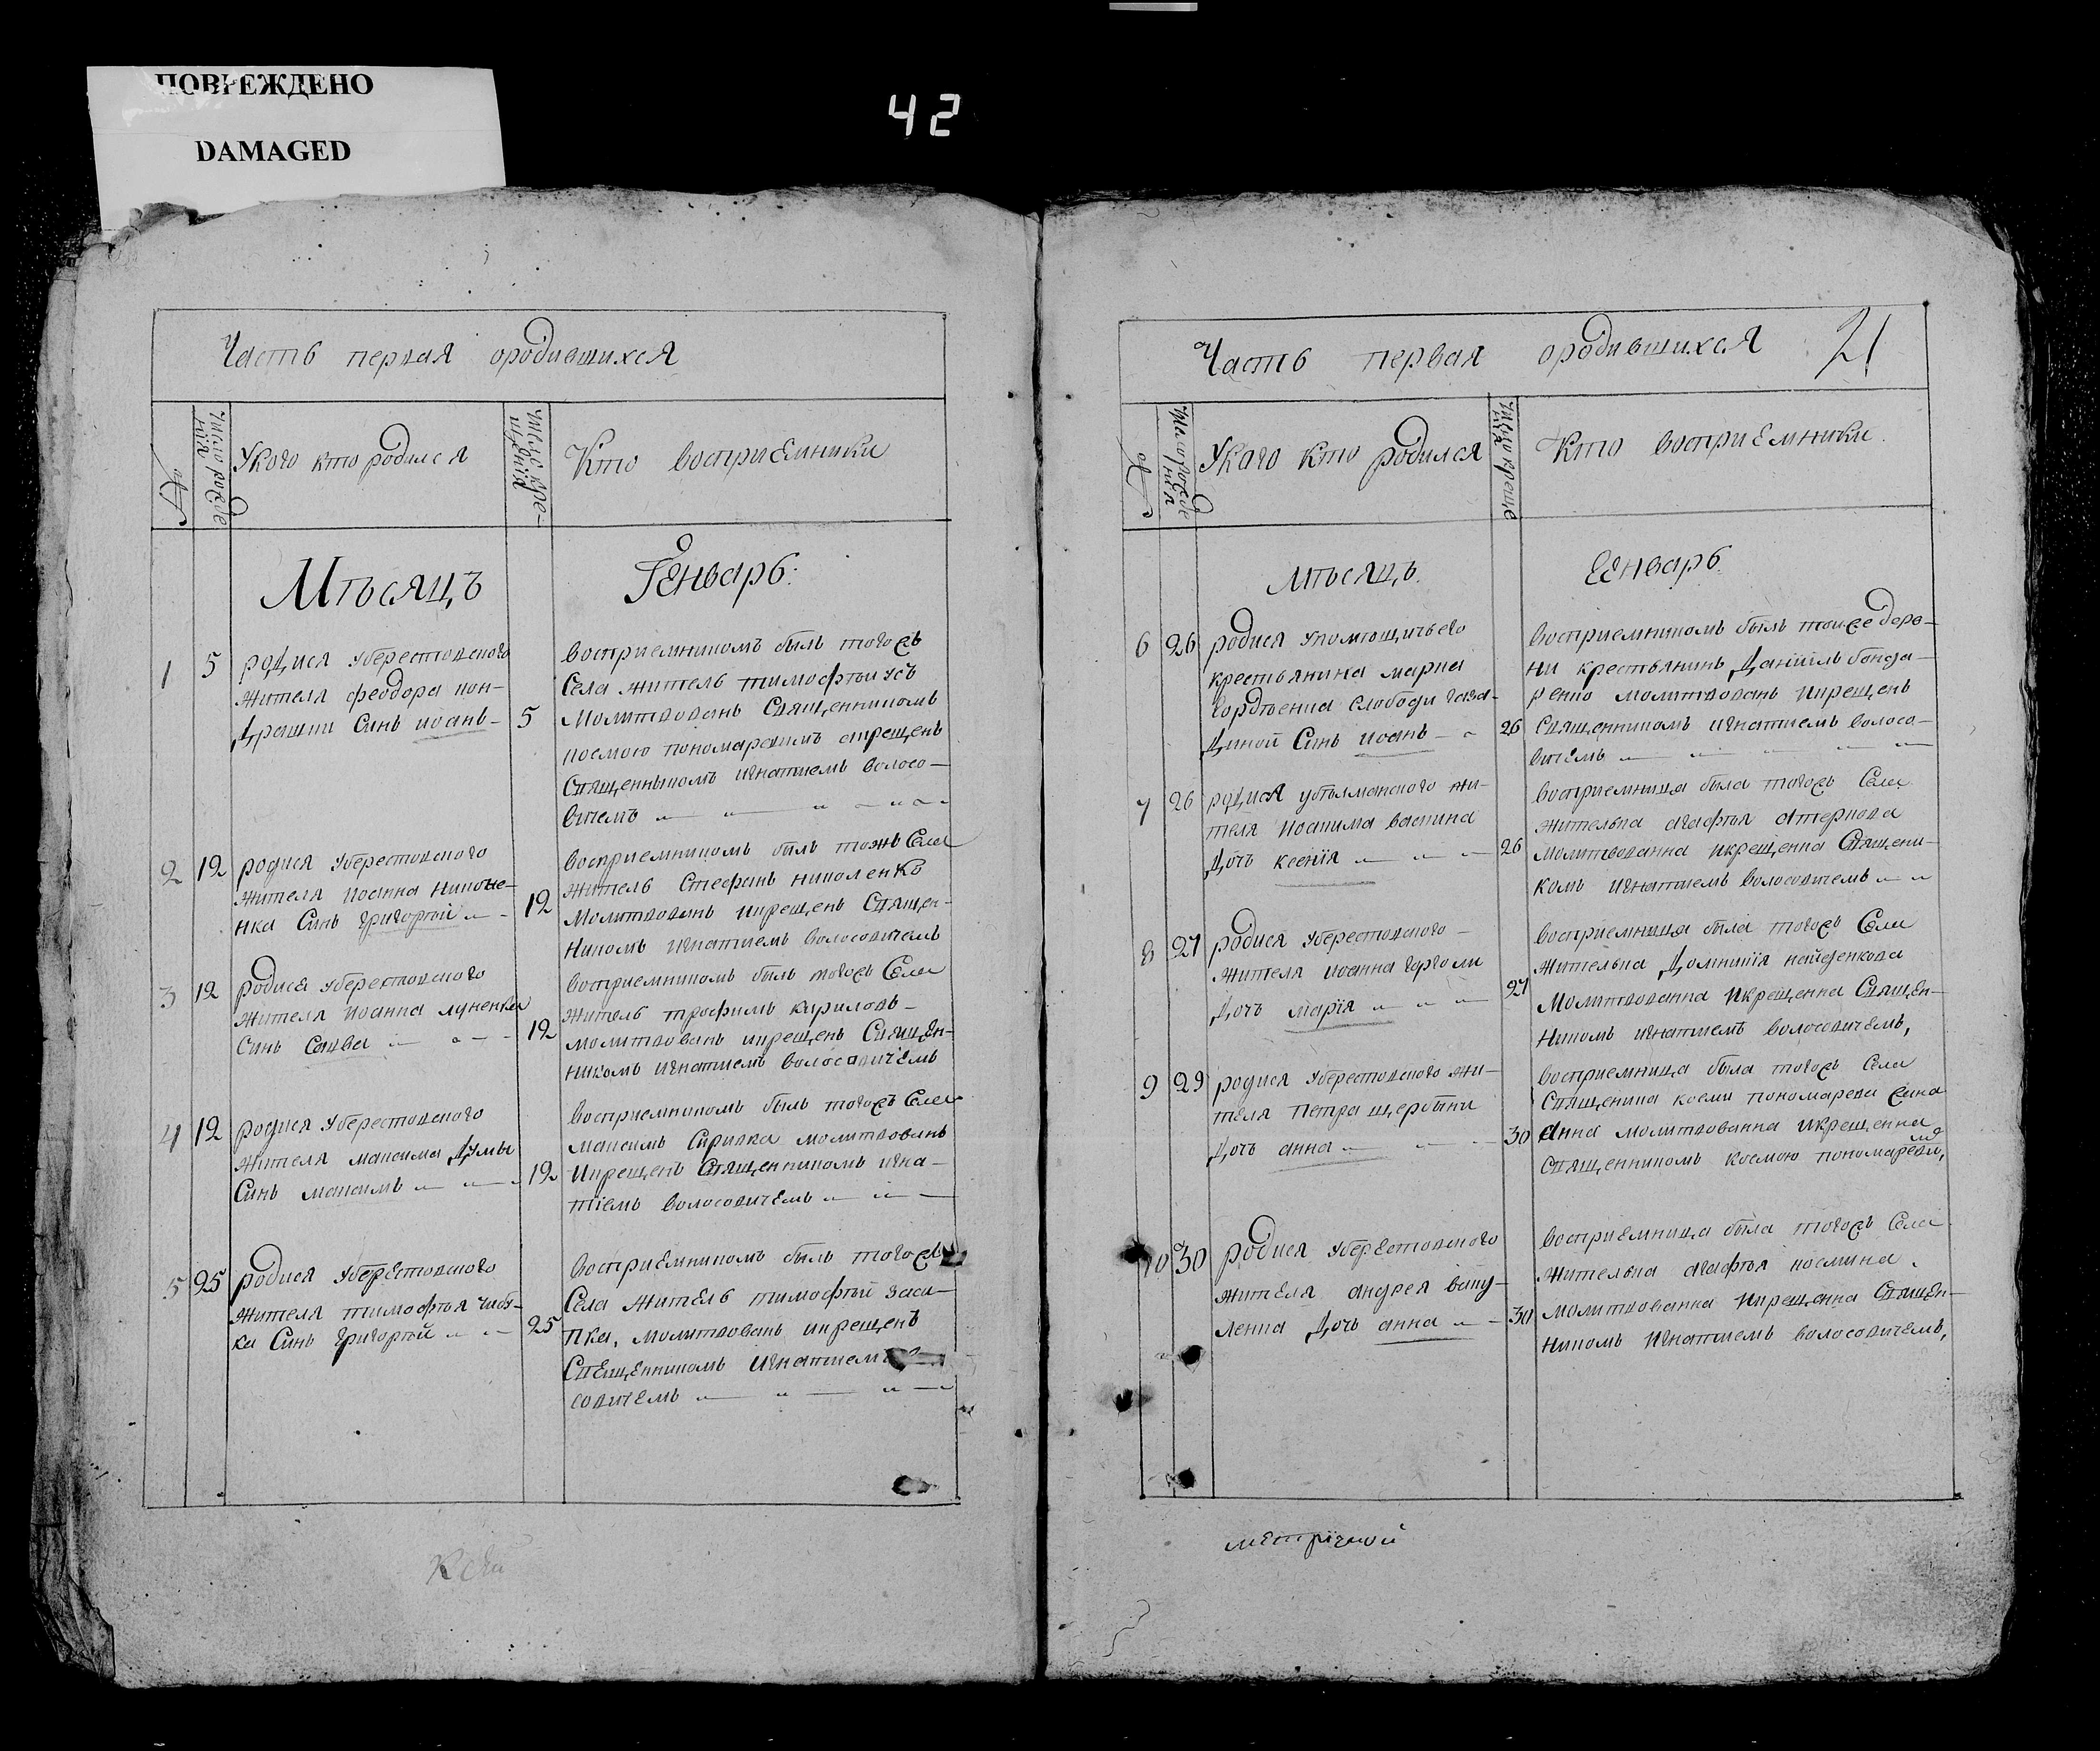 ПОВРЕЖДЕНО
DAMAGED
42
Часть первая ородившихся
Укого кто родился
Кто восприемники
Мѣсяцъ
Генварь:
1 5 родися уберестовского
жителя феодора кон-
драшки Синъ иоанъ
5
восприемникомъ былъ тогожъ
Села житель тимофѣи усъ
Молитвованъ Священникомъ
космою пономаревимъ
Священныкомъ игнатиемъ волосо-
вичемъ
2 12 родися уберестовского
жителя иоанна
Синъ григорѣй
12
восприемникомъ былъ тожъ Села
житель Стефанъ николенко
Молитвованъ икрещенъ Священ-
никомъ игнатиемъ волосовичемъ
3 12 родися уберестовского
жителя иоанна луненка
Синъ Савва
12
восприемникомъ былъ тогожъ Села
житель трофимъ кириловъ
молитвованъ икрещенъ Священ-
никомъ игнатиемъ волосовичемъ
4 12 родися уберестовского
жителя максима думы
Синъ максимъ
12
восприемникомъ былъ тогожъ Села
максимъ молитвованъ
Икрещенъ Священникомъ игна-
тіемъ волосовичемъ
5 25 родися уберестовского
жителя тимофѣя
ка Синъ григорѣй
25
восприемникомъ былъ тогожъ
Села житель тимофѣй заси-
пка, молитвованъ икрещенъ
Священникомъ игнатиемъ
совичемъ
Часть первая ородившихся 21
Укого кто родился
Кто восприемники
мѣсяцъ
Генварь
6 26 родися упомющичьего
крестьянина марка
гордѣенка слободи
Синъ иоанъ
26
восприемникомъ былъ тоиже дере-
ни крестьянинъ Даніилъ бонда-
ренко молитвованъ икрещенъ
Священникомъ игнатиемъ волосо-
вичемъ
7 26 родися жи-
теля иоакима васина
дочь ксенія
26
восприемница была тогожъ Села
жителька агафья
молитвованна икрещенна Священи-
комъ игнатиемъ волосовичемъ
8 27 родися уберестовского
жителя иоанна горголи
дочь марія
27
восприемница была тогожъ Села
жителька Домникія найденкова
Молитвованна икрещенна Священ-
никомъ игнатиемъ волосовичемъ,
9 29 родися уберестовского жи-
теля петра щербини
дочь анна
30
восприемница была тогожъ Села
Священика косми пономарева
анна молитвованна икрещенна
Священникомъ космою
10 30 родися уберестовского
жителя андрея ваку-
ленка дочь анна
30
восприемница была тогожъ Села
жителька агафья космина
молитвованна икрещенна Священ-
никомъ игнатиемъ волосовичемъ,
метричной